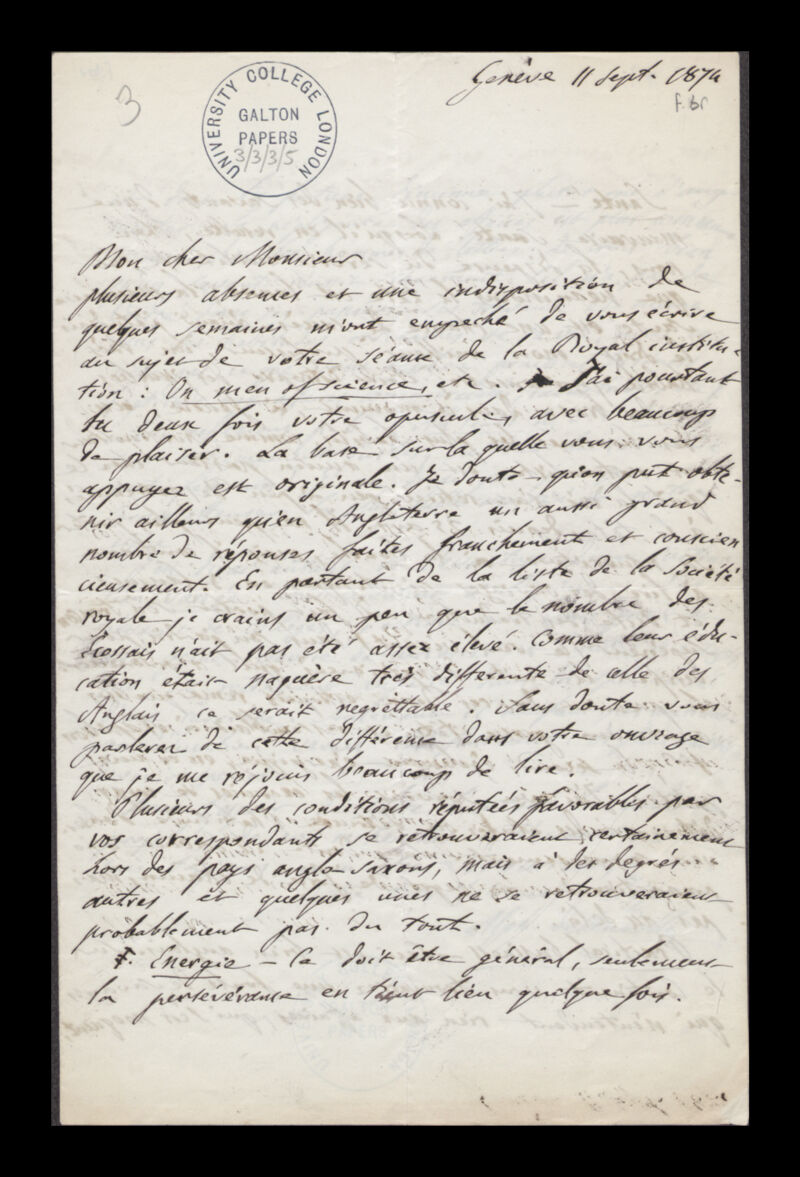 Genève 11 Sept. 1874
3
UNIVERSITY COLLEGE LONDON
GALTON
PAPERS
3/3/3/5
Mon cher Monsieur
plusieurs absences et une indisposition de
quelques semaines m'ont empeché de vous écrire
au sujet de votre séance de la Royal institu-
tion : On men of science, etc. J'ai pourtant
lu deux fois votre opuscule, avec beaucoup
de plaisir. La base sur la quelle vous vous
appuyez est originale. Je doute qu'on put obte-
nir ailleurs qu'en Angleterre un aussi grand
nombre de réponses faites franchement et conscien
cieusement. En partant de la liste de la Société
royale je crains un peu que le nombre des
Ecossais n'ait pas été assez élevé. Comme leur édu-
cation était naguère très differente de celle des
Anglais ce serait regrettable. Sans doute vous
parlerez de cette différence dans votre ouvrage
que je me réjouis beaucoup de lire.
Plusieurs des conditions réputées favorables par
vos correspondants se retrouveraient certainement
hors des pays anglo saxons, mais à des degrés
autres et quelques unes ne se retrouveraient
probablement pas du tout.
Energie – Ce doit être général, seulement
la persévérance en tient lieu quelque fois.